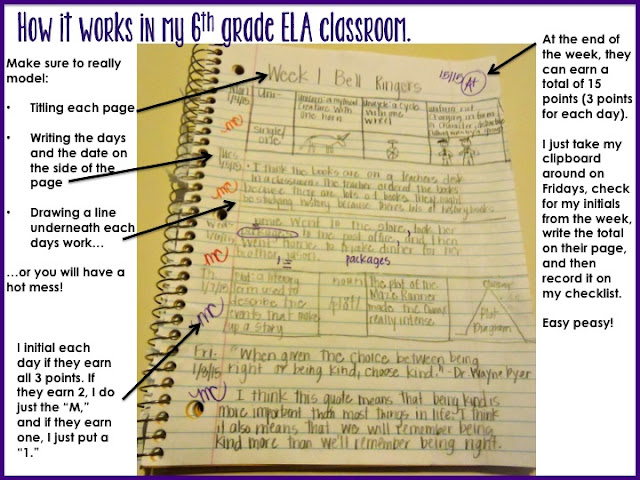 How it works in my 6th grade ELA classroom.
Make sure to really
model:
• Titling each page
• Writing the days
and the date on
the side of the
page
• Drawing a line
underneath each
days work…
…or you will have a
hot mess!
I initial each
day if they earn
all 3 points. If
they earn 2, I do
just the “M,”
and if they earn
one, I just put a
“1.”
Week 1 Bell Ringers
15/15 A+
Uni-
single/
one
unicorn: a mythical
creature with
one horn
unicycle: a cycle
with one
wheel
mc
• I think the books are on a teachers desk
in a classroom. The teacher ordered the books
because there are lots of books. They might
be studying history because theres lots of history books
mc
went to the store, took her
to the post office, and then
went home to make dinner for her
packages
mc
Th.
Plot: a literary
term used to
describe the
events that make
up a story
noun
The plot of the
Maze Runner
made the
really intense
Plot
Diagram
mc
Fri.
1/9/15
"When given the choice between being
right or being kind, choose kind." -Dr. Wayne Dyer
mc
• I think this quote means that being kind is
more important than most things in life. I think
it also means that we will remember being
kind more than we'll remember being right.
At the end of
the week, they
can earn a
total of 15
points (3 points
for each day).
I just take my
clipboard
around on
Fridays, check
for my initials
from the week,
write the total
on their page,
and then
record it on
my checklist.
Easy peasy!